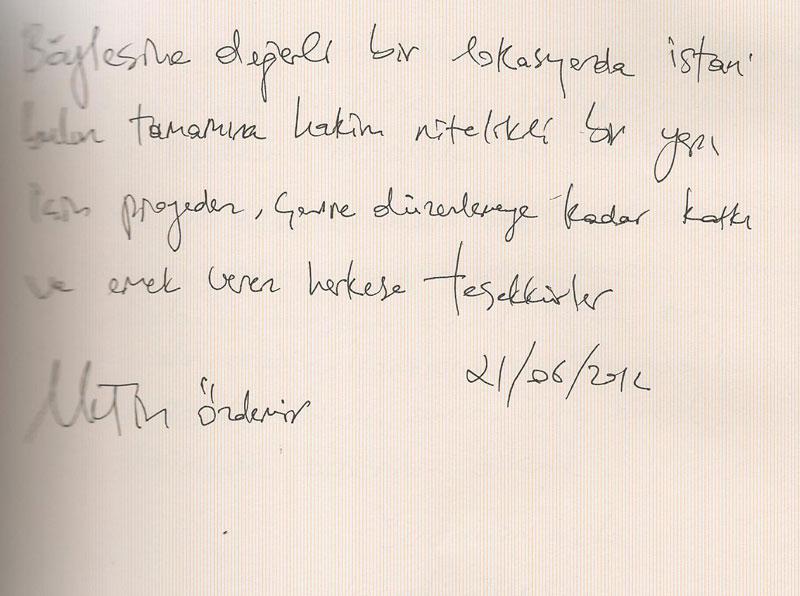 Böylesine değerli bir lokasyonda istan'
bulun tamamına hakim nitelikli bir yapı
için projeden, çevre düzenlemeye kadar katkı
ve emek veren herkese teşekkürler
Metin Özdemir
21/06/2012